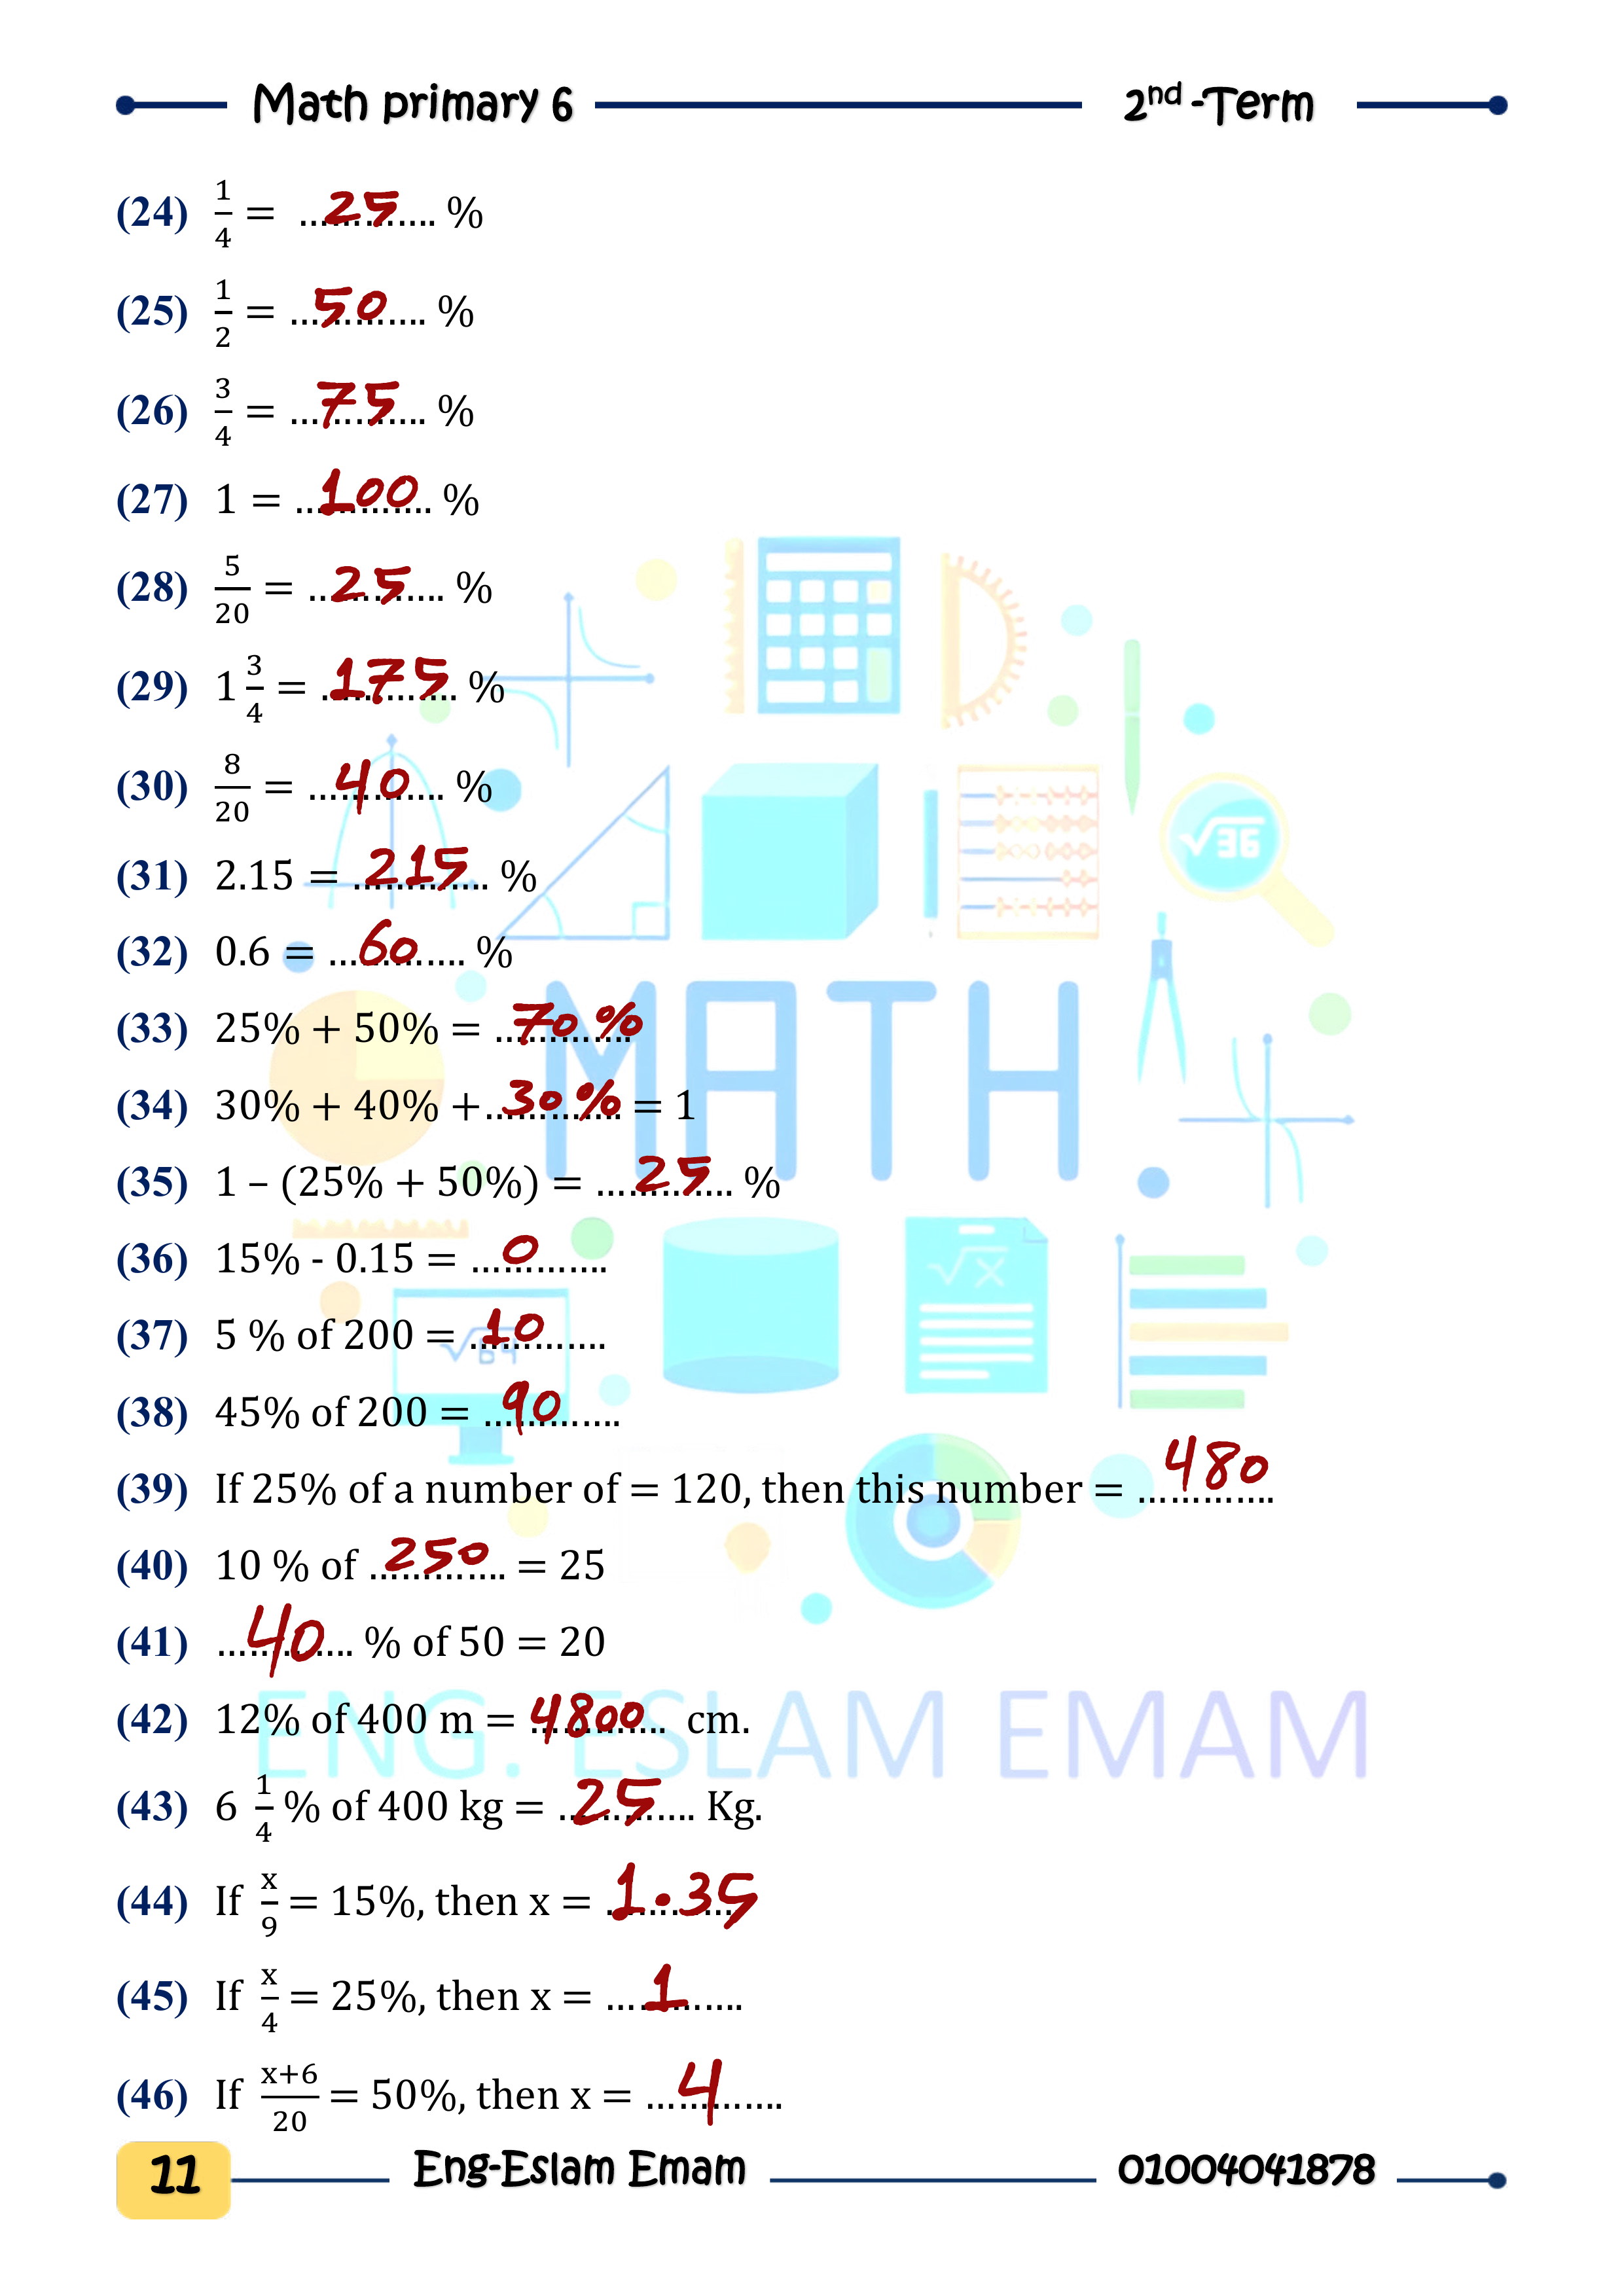 Math primary 6 2nd -Term
(24) 1/4 = ............. 25 %
(25) 1/2 = ............. 50 %
(26) 3/4 = ............. 75 %
(27) 1 = ............. 100 %
(28) 5/20 = ............. 25 %
(29) 1 3/4 = ............. 175 %
(30) 8/20 = ............. 40 %
(31) 2.15 = ............. 215 %
(32) 0.6 = ............. 60 %
(33) 25% + 50% = ............. 70 %
(34) 30% + 40% +............. 30 % = 1
(35) 1 – (25% + 50%) = ............. 25 %
(36) 15% - 0.15 = ............. 0
(37) 5 % of 200 = ............. 10
(38) 45% of 200 = ............. 90
(39) If 25% of a number of = 120, then this number = ............. 480
(40) 10 % of ............. 250 = 25
(41) ............. 40 % of 50 = 20
(42) 12% of 400 m = ............. 4800 cm.
(43) 6 1/4 % of 400 kg = ............. 25 Kg.
(44) If x/9 = 15%, then x = ............. 1.35
(45) If x/4 = 25%, then x = ............. 1
(46) If x+6/20 = 50%, then x = ............. 4
√36
MATH
√x
√64
ENG. ESLAM EMAM
11 Eng-Eslam Emam 01004041878